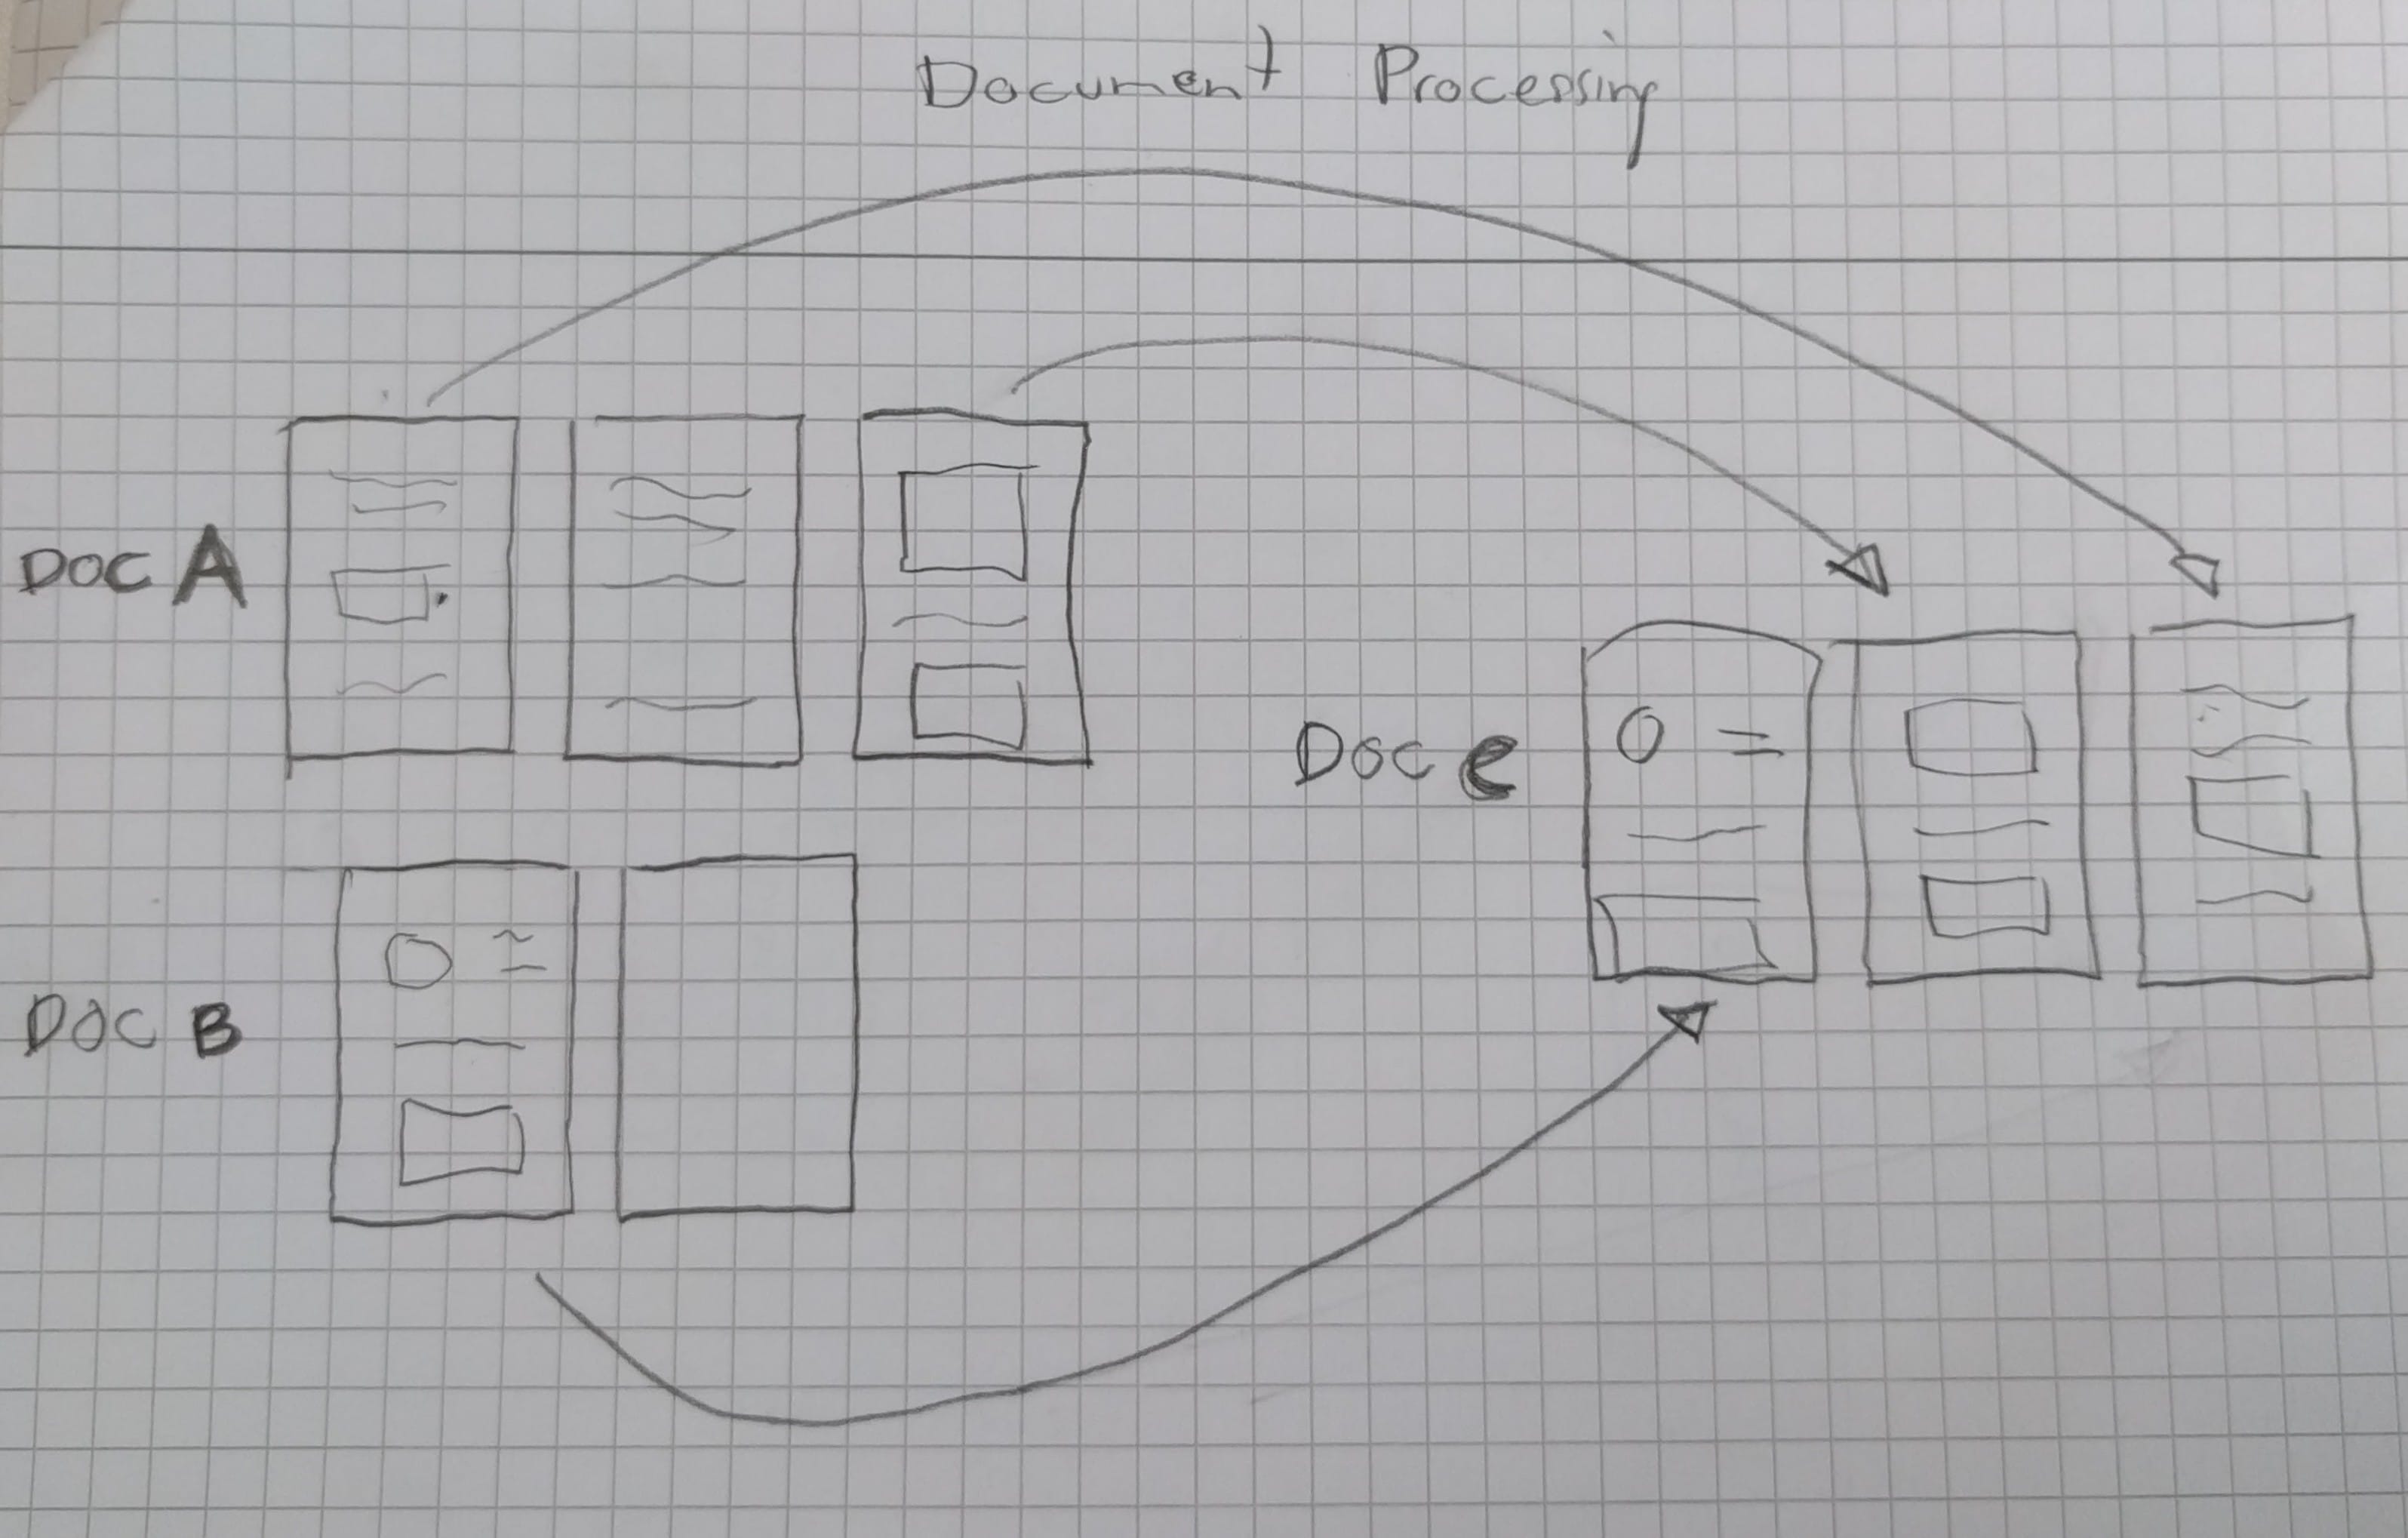 Document Processing
DOC A
DOC e
DOC B